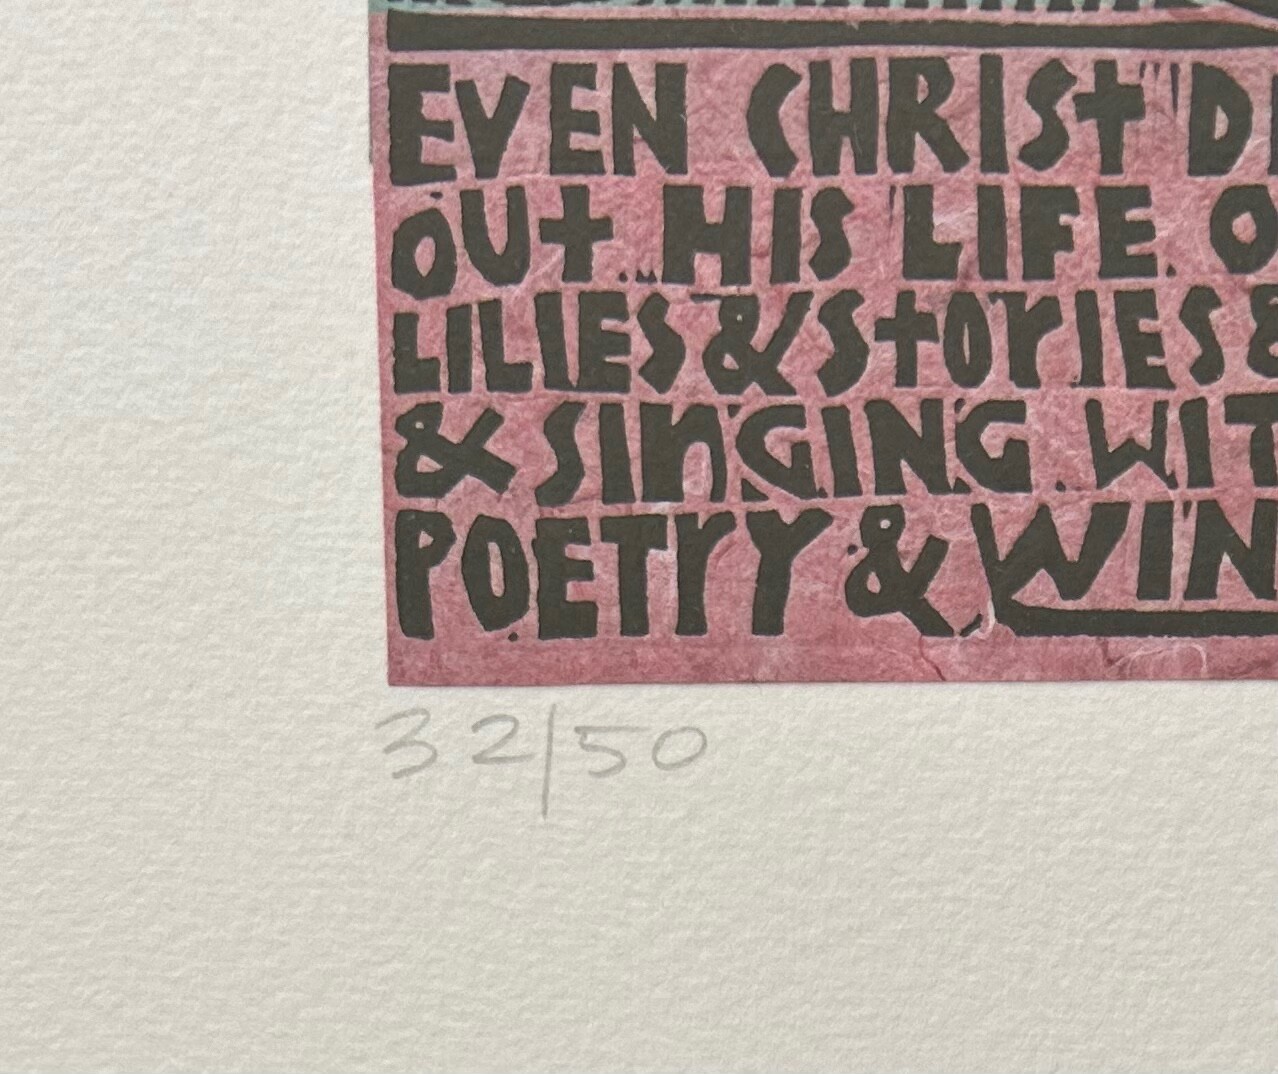 EVEN CHRIST D
OUT HIS LIFE O
LILIES & STORIES &
& SINGING WIT
POETRY & WIN
32/50